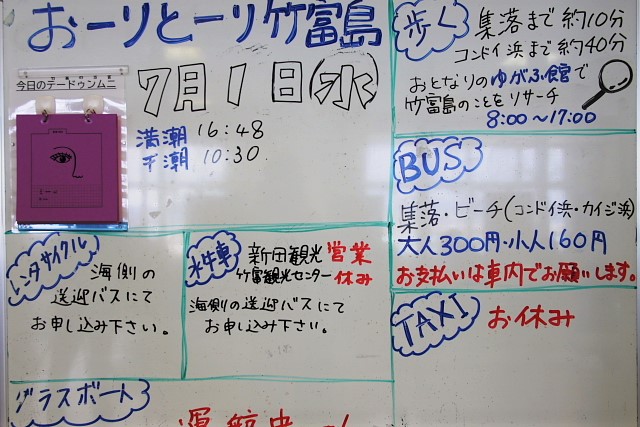 おーりとーり竹富島
今日のテードゥンムニ
7月1日(水)
満潮 16:48
干潮 10:30
歩く
集落まで約10分
コンドイ浜まで約40分
おとなりのゆがふ館で
竹富島のことをリサーチ
8:00〜17:00
BUS
集落・ビーチ(コンドイ浜・カイジ浜)
大人300円・小人160円
お支払いは車内でお願いします。
レンタサイクル
海側の
送迎バスにて
お申し込み下さい。
水牛車
新田観光 営業
竹富観光センター 休み
海側の送迎バスにて
お申し込み下さい。
TAXI
お休み
グラスボート